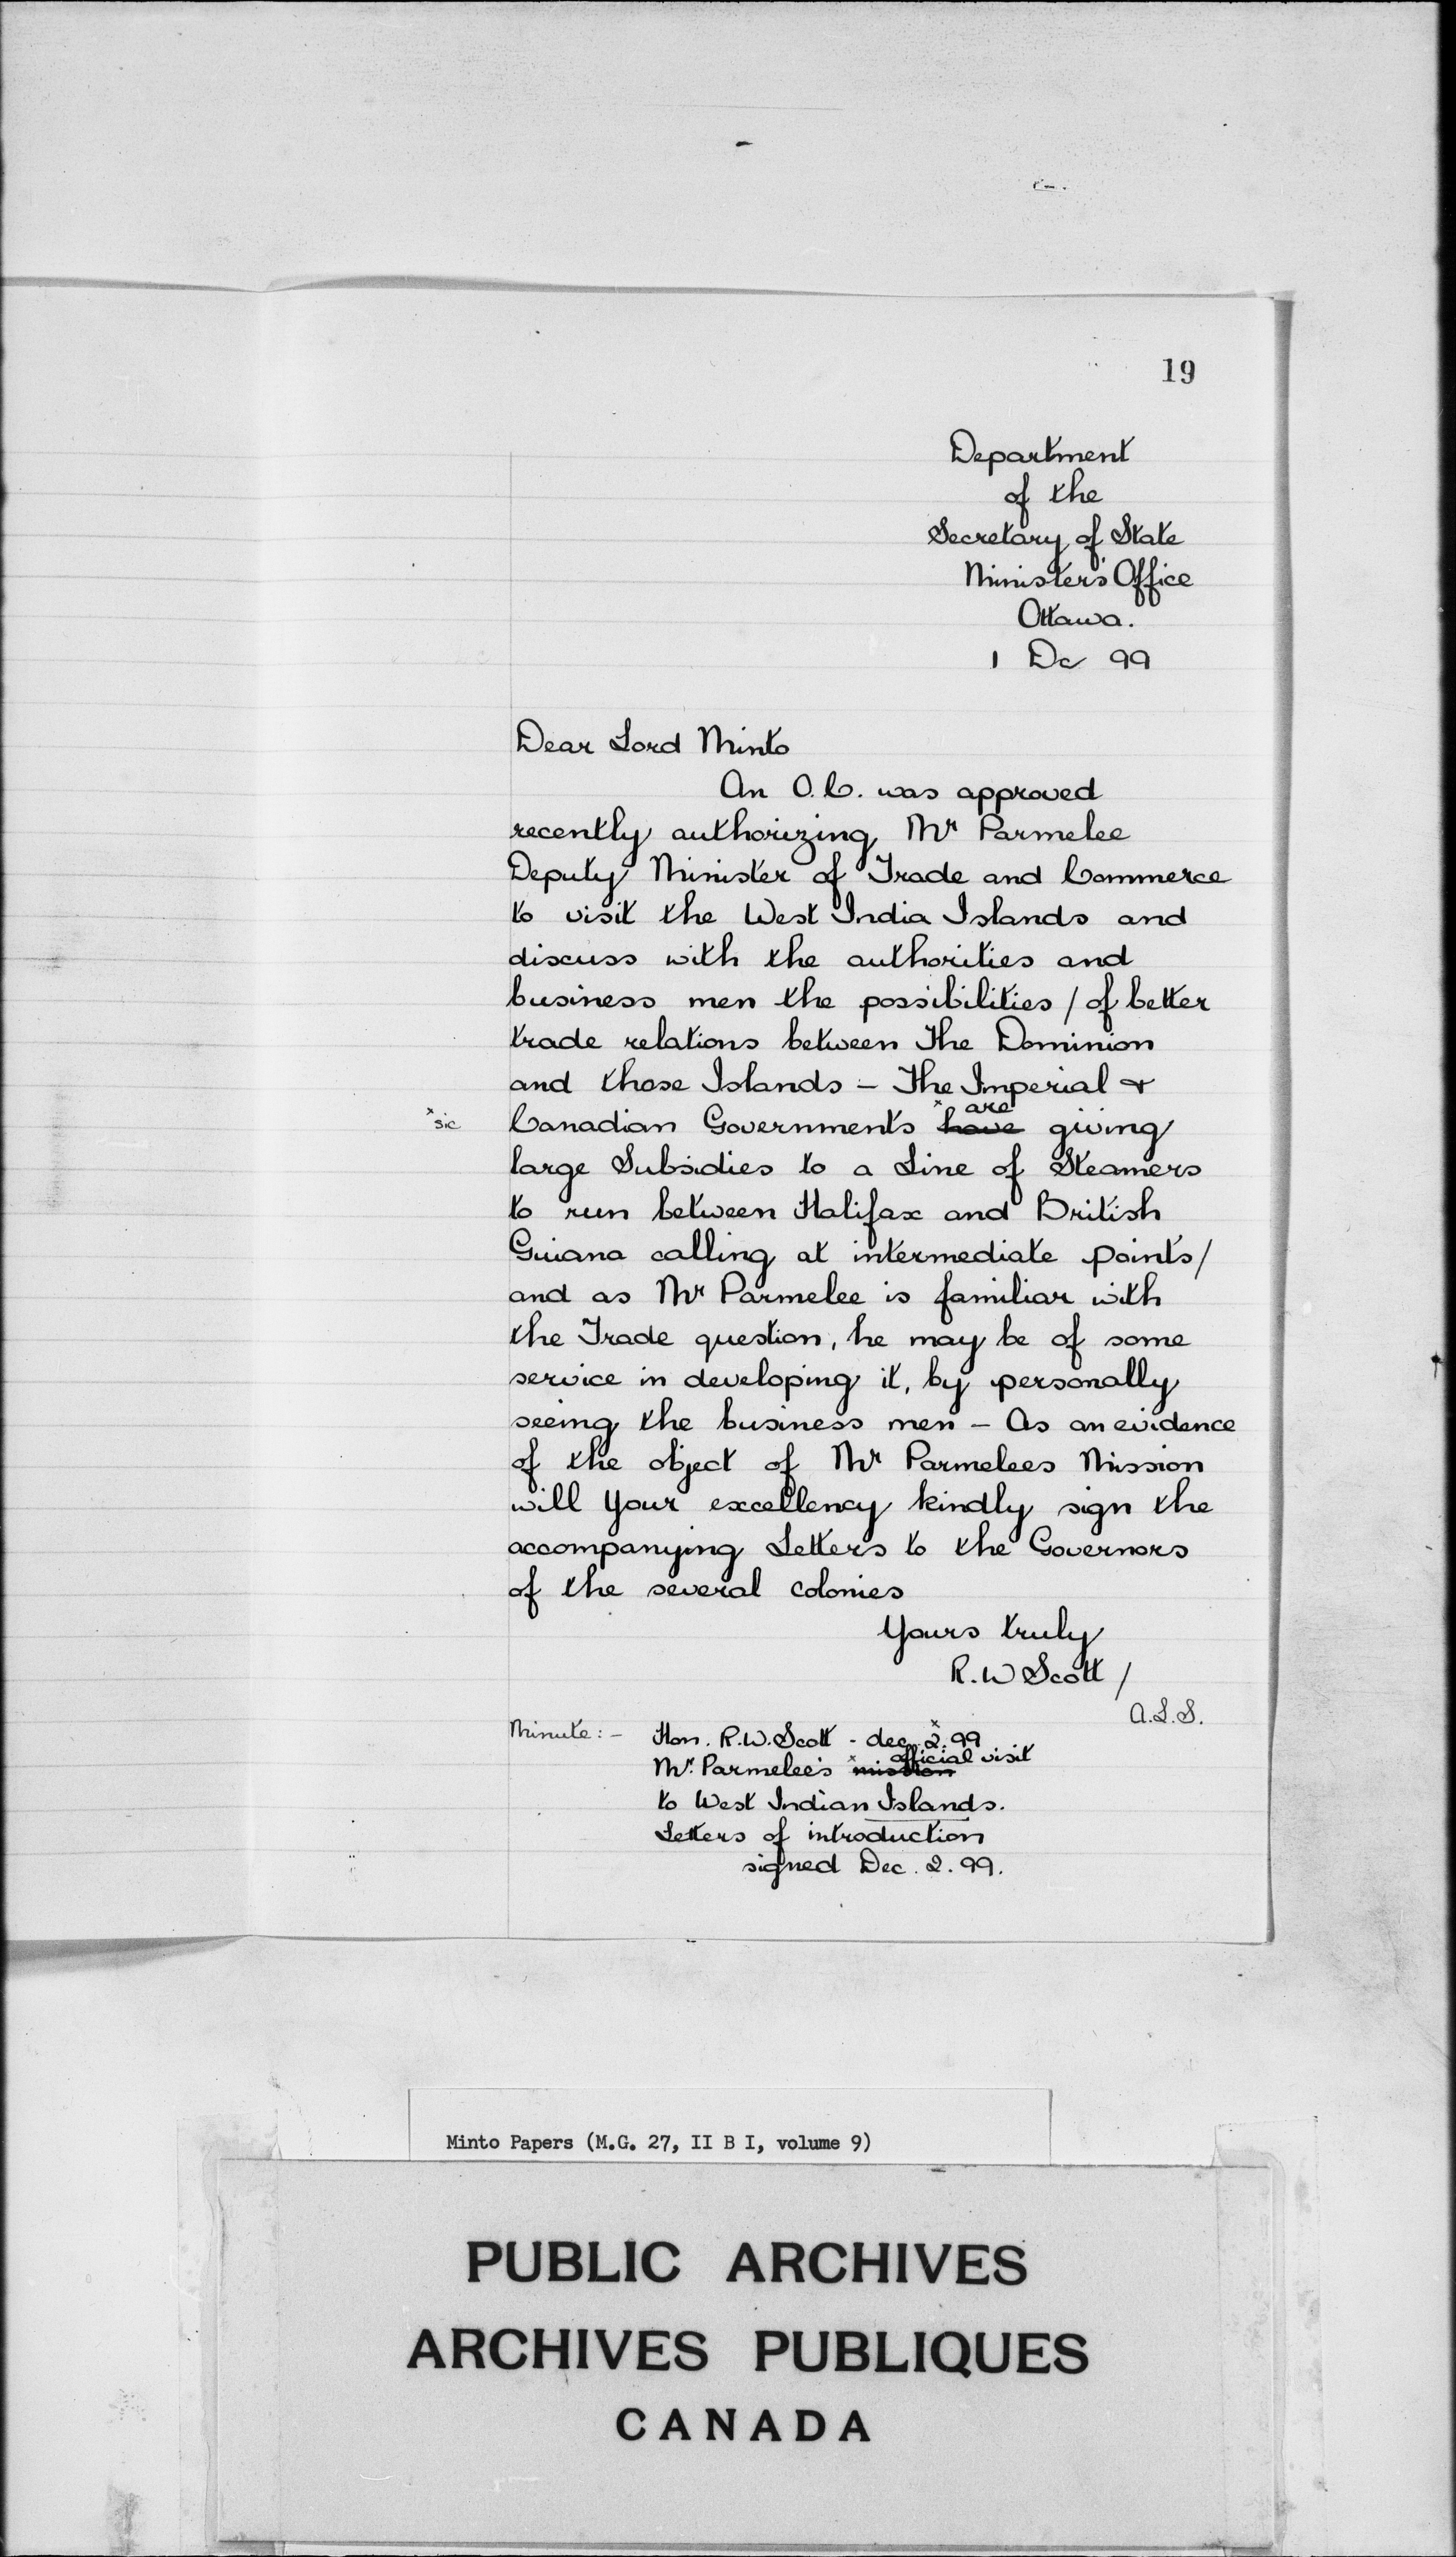 19
Department
of the
Secretary of State
Minister's Office
Ottawa.
1 Dc 99
Dear Lord Minto
An O.C. was approved
recently authorizing Mr Parmelee
Deputy Minister of Trade and Commerce
to visit the West India Islands and
discuss with the authorities and
business men the possibilities / of better
trade relations between The Dominion
and those Islands – The Imperial &
x sic Canadian Governments x have are giving
large Subsidies to a Line of Steamers
to run between Halifax and British
Guiana calling at intermediate points/
and as Mr Parmelee is familiar with
the Trade question, he may be of some
service in developing it, by personally
seeing the business men – As an evidence
of the object of Mr Parmelees Mission
will Your excellency kindly sign the
accompanying Letters to the Governors
of the several colonies
Yours truly
R.W Scott /
A.L.S.
Minute: – Hon. R.W. Scott - dec x 2. 99
Mr. Parmelee's x mission official visit
to West Indian Islands.
Letters of introduction
signed Dec. 2. 99.
Minto Papers (M.G. 27, II B I, volume 9)
PUBLIC ARCHIVES
ARCHIVES PUBLIQUES
CANADA